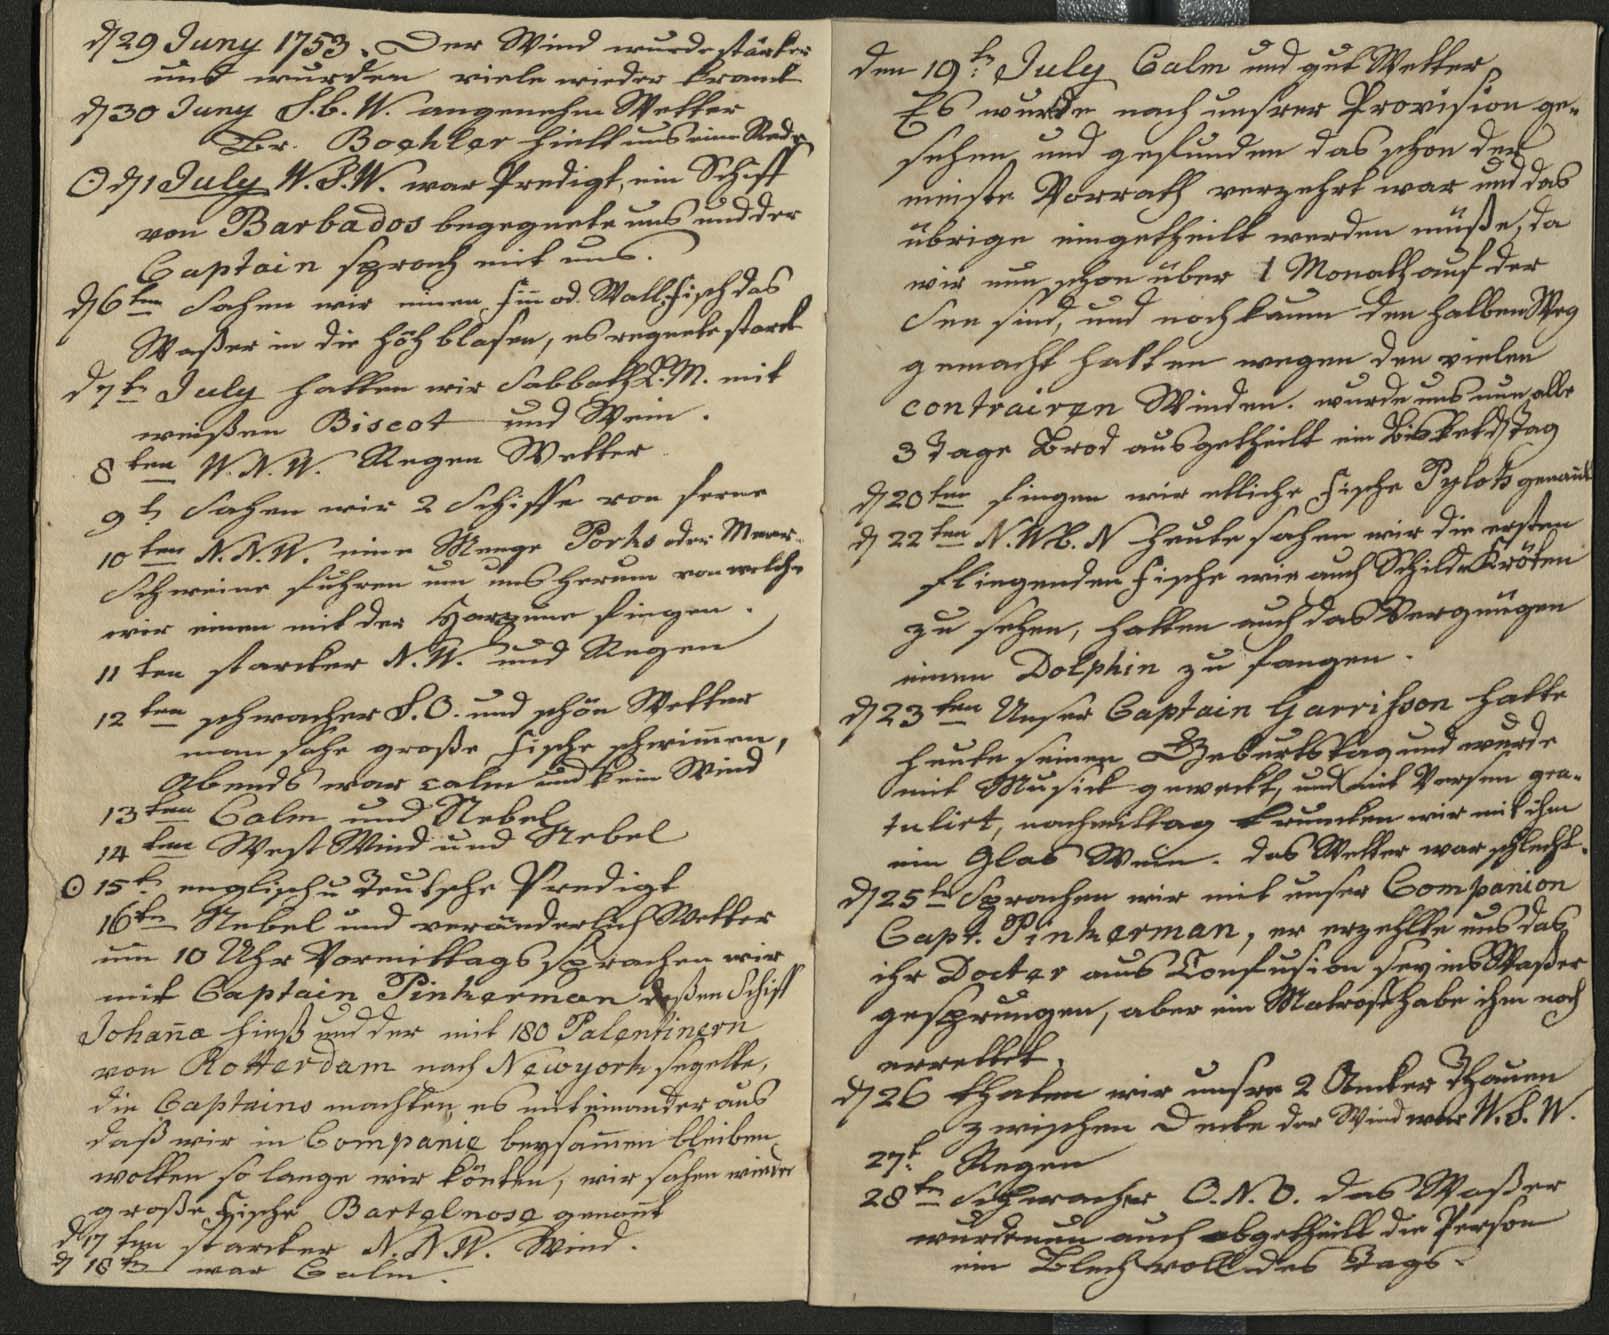 d 29 Juny 1753. Der Wind wurde stärker
und wurden viele wieder kranck
d 30 Juny S.b.W. angenehm Wetter
Br. Boehler hielt uns eine Rede
☉ d 1 July W.S.W. war Predigt, ein Schiff
von Barbados begegnete uns und der
Captain sprach mit uns.
d 6ten sahen wir einen Finn od. Wallfisch das
Waßer in die Höh blasen, es regnete starck
d 7tn July hatten wir Sabbaths L.M. mit
weißen Biscot und Wein.
8ten W.N.W. Regen Wetter
9t. sahen wir 2 Schiffe von ferne
10ten N.N.W. eine Menge Porks oder Meer-
Schweine fuhren um uns herum von welche
wir einen mit der Harpune fiengen.
11ten starcker N.W. und Regen
12ten schwacher S.O. und schön Wetter
man sahe große Fische schwim̄en,
Abends war calm und kein Wind
13ten Calm und Nebel
14ten West Wind und Nebel
☉ 15t. englisch u Teutsche Predigt
16tn Nebel und veränderlich Wetter
um 10 Uhr Vormittags sprachen wir
mit Captain Pinkerman deßen Schiff
Johan̄a hieß und der mit 180 Palentinern
von Rotterdam nach Newyork segelte,
die Captains machten es miteinander aus
daß wir in Companie beysam̄en bleiben
wolten so lange wir kön̄ten, wir sahen wieder
große Fische Bartelnose genan̄t
d 17ten starcker N.N.W. Wind.
d 18tn war Calm.
den 19t. July Calm und gut Wetter
Es wurde nach unsrer Provision ge-
sehen und gefunden das schon der
meiste Vorrath verzehrt war und das
übrige eingetheilt werden müße, da
wir nun schon über 1 Monath auf der
See sind, und noch kaum den halben Weg
gemacht hatten wegen den vielen
contrairen Winden. wurde uns nun alle
3 Tage Brod ausgetheilt ein Bisket ds Tag
d 20ten fingen wir etliche Fische Pylots genan̄t
d 22ten N.W.b.N heute sahen wir die ersten
fliegenden Fische wie auch Schild Kröten
zu sehen, hatten auch das Vergnügen
einen Dolphin zu fangen.
d 23ten Unser Captain Garrisson hatte
heute seinen Geburts tag und wurde
mit Musick geweckt, und mit Versen gra-
tulirt, nachmittag truncken wir mit ihm
ein Glas Wein. das Wetter war schlecht.
d 25tn Sprachen wir mit unser Companion
Capt. Pinkerman, er erzehlte uns das
ihr Docter aus Confusion sey ins Waßer
gesprungen, aber ein Matrose habe ihm noch
errettet.
d 26 thaten wir unsre 2 Ancker Thauen
zwischen Decke der Wind war W.S.W.
27t. Regen
28tn Schwacher O.N.O. das Waßer
wurde nun auch abgetheilt die Person
ein Blech voll des Tags.